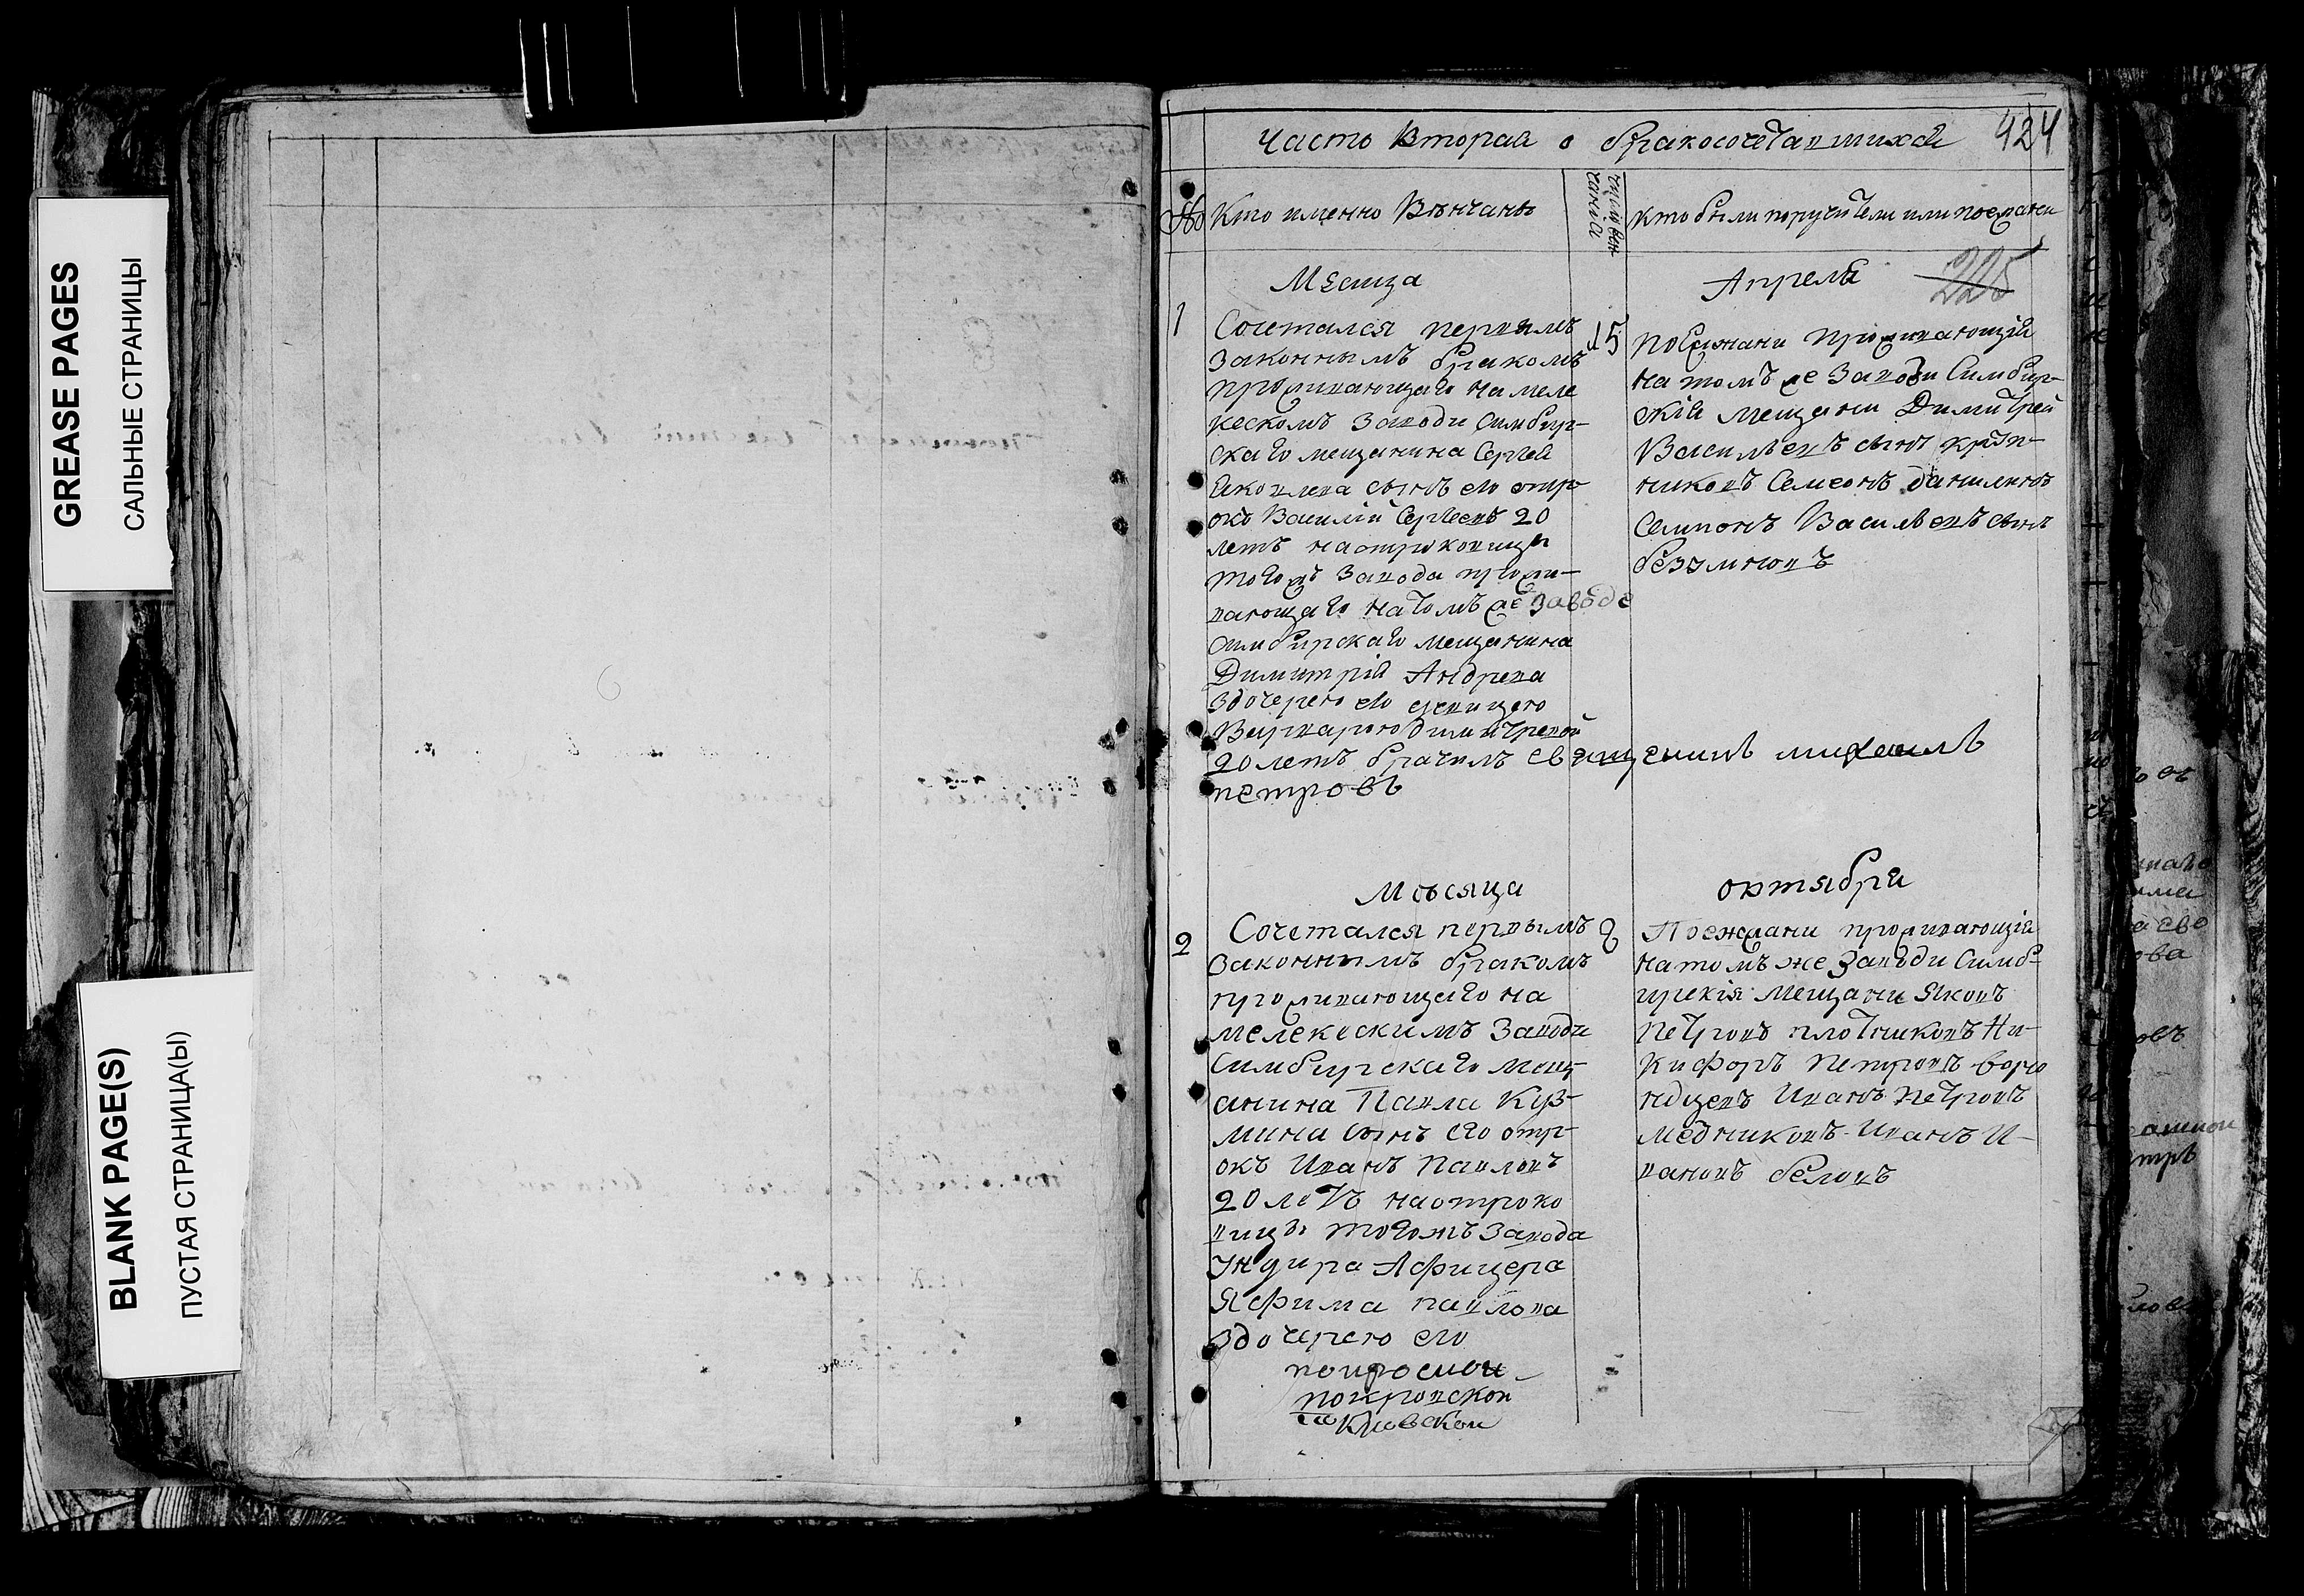 GREASE PAGES
САЛЬНЫЕ СТРАНИЦЫ
BLANK PAGE(S)
ПУСТАЯ СТРАНИЦА(Ы)
Часть Вторая о бракосочетавшихся
424
№
Кто именно Венчаны
кто были поручители или поезжани
Месяца
Апреля
225
1
Сочетался первымъ
законнымъ бракомъ
проживающаго на меле
кескомъ Заводи Симбир-
скаго мещанина Сергея
Яковлева сынъ его отр-
окъ Василий Сергеевъ 20
летъ на отроковицы
тогожъ Завода прожи-
вающаго на томъ же Заводе
Симбирскаго мещанина
Димитрия Андреева
здочерею его девицею
Варварою димитревой
20 летъ брачилъ священникъ михаилъ
петровъ
15
поезжани проживающия
на томъ же Заводи Симбир-
ския мещани Димитрей
Васильевъ сынъ
Семеонъ даниловъ
Васильевъ сынъ
безумновъ
Месяца
октября
2
Сочетался первымъ
законнымъ бракомъ
проживающаго на
мелекескимъ Заводи
Симбирскаго мещ-
анина Павла Куз-
мина сынъ его отр-
окъ Иванъ Павловъ
20 летъ на отроко
вицы тогожъ Завода
ундира Афицера
Яфима павлова
здочерею его
покровской
8
Поезжани проживающия
на томъ же Заводи Симб-
ирския Мещани Яковъ
Петровъ плотниковъ Ни-
кифоръ Петровъ
Иванъ Петровъ
медниковъ Иванъ И-
вановъ беловъ